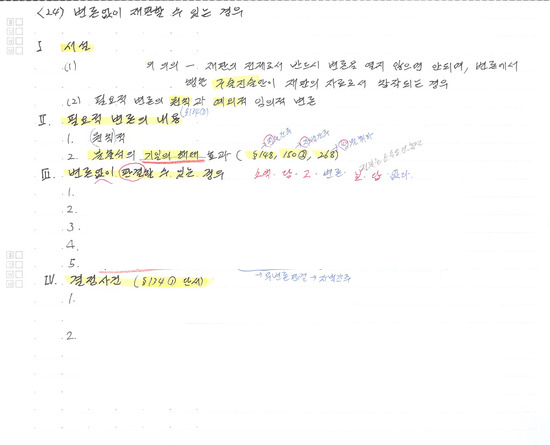 <24> 변론없이 재판할 수 있는 경우
I 서설
(1) 의 의의 - 재판의 전제로서 반드시 변론을 열지 않으면 안되며, 변론에서
행한 구술진술만이 재판의 자료로서 참작되는 경우
(2) 필요적 변론의 원칙과 예외적 임의적 변론
II. 필요적 변론의 내용
1. 원칙적
2. 기일의 해태 효과 (§148, 150③, 268)
III. 변론없이 판결할 수 있는 경우 소액. 답. 고. 변론
1.
2.
3.
4.
5.
→ 무변론판결 → 자백간주
IV. 결정사건 (§134 ① 단서)
1.
2.